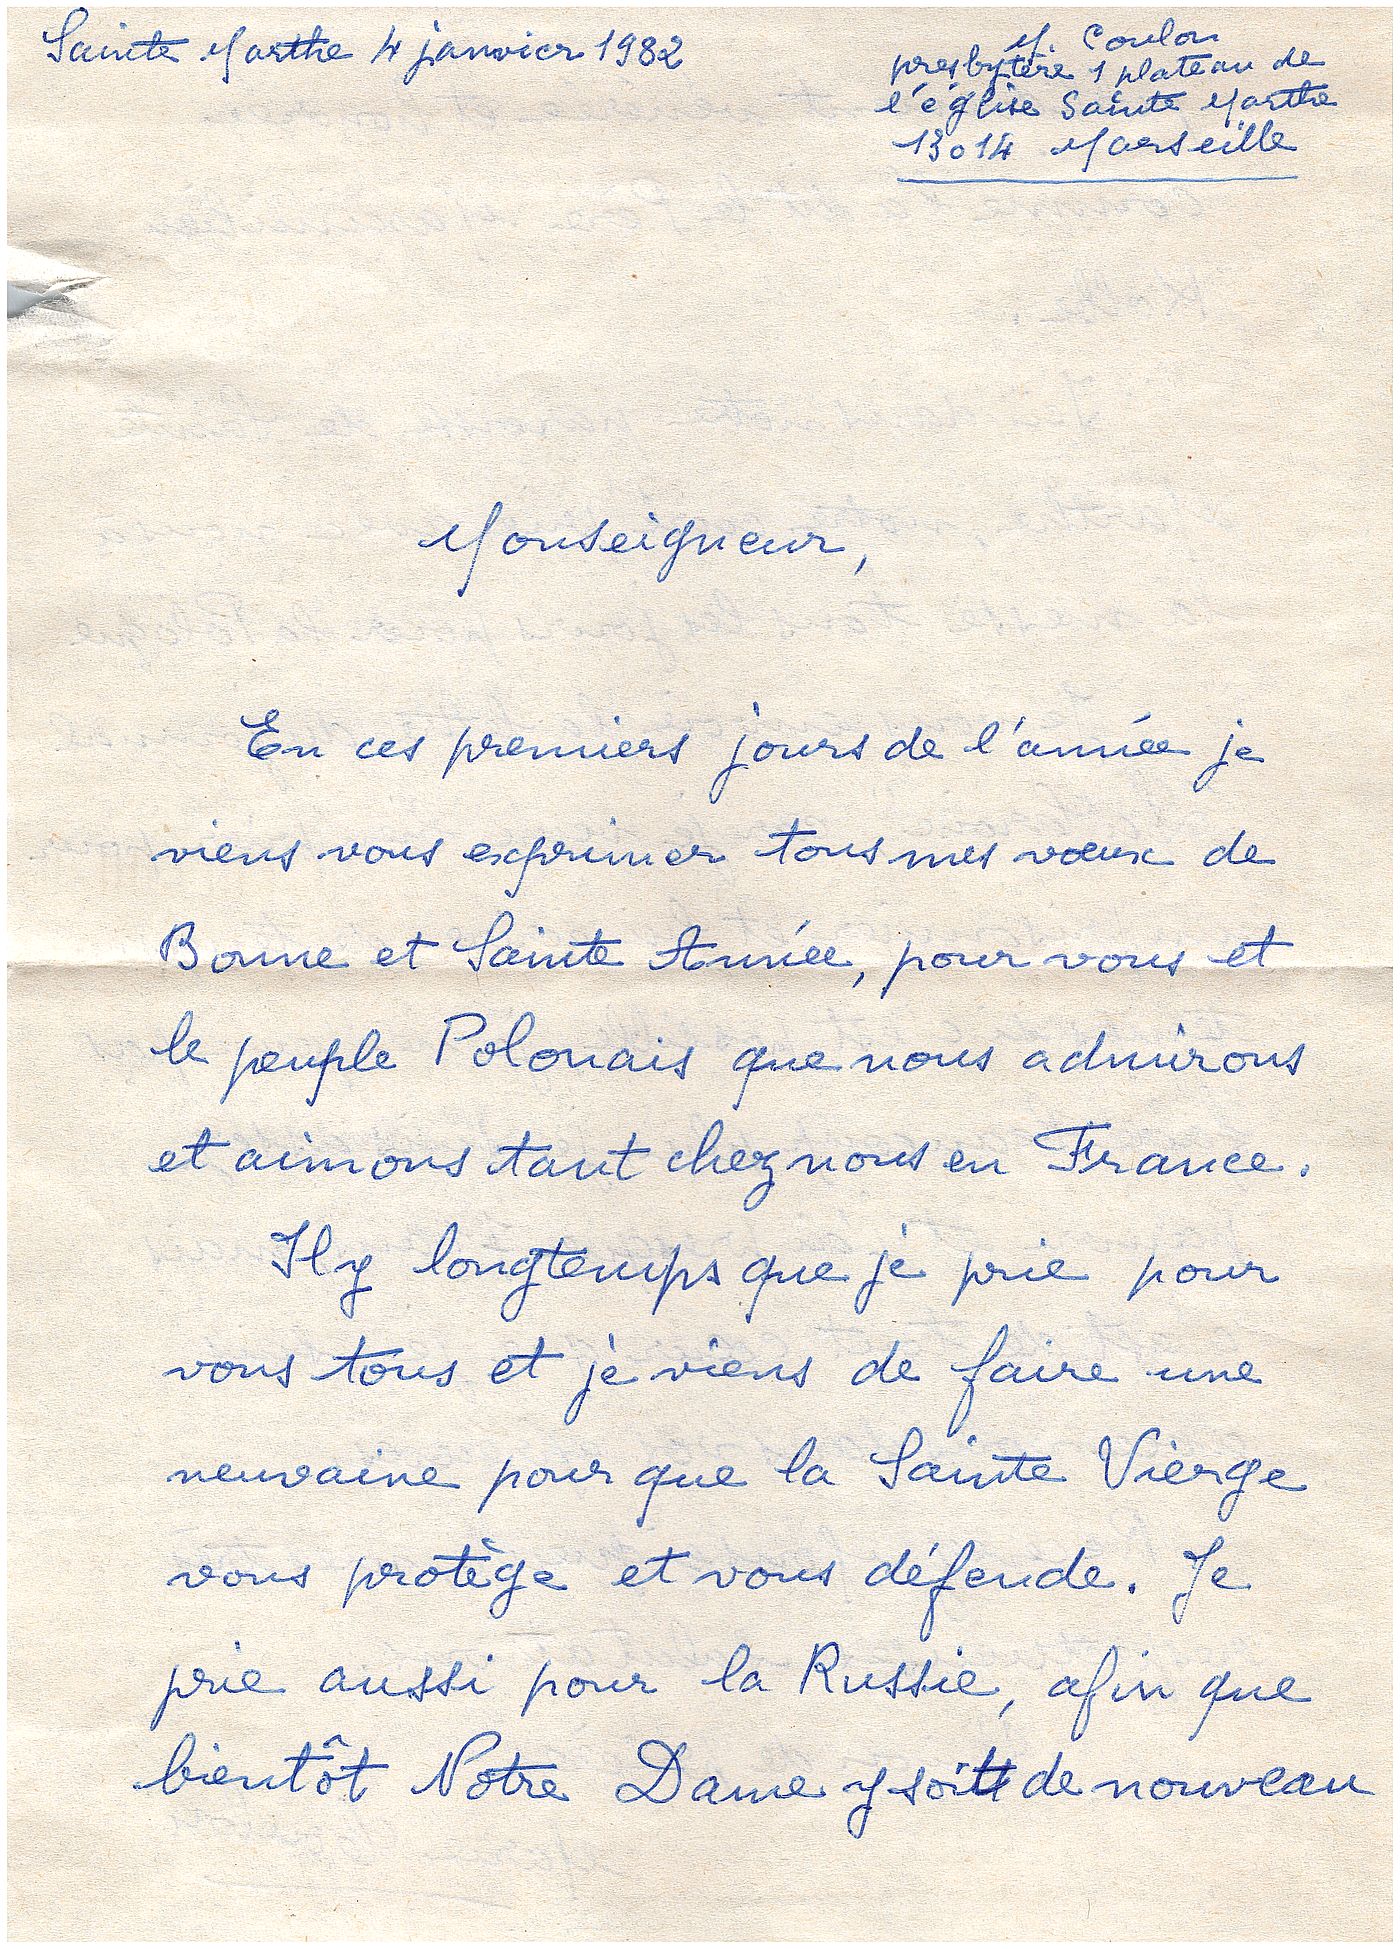 Sainte Marthe 4 janvier 1982
M. Coulon
presbytère 1 plateau de
l'église Sainte Marthe
13014 Marseille
Monseigneur,
En ces premiers jours de l'année je
viens vous exprimer tous mes voeux de
Bonne et Sainte Année, pour vous et
le peuple Polonais que nous admirons
et aimons tant chez nous en France.
Il y longtemps que je prie pour
vous tous et je viens de faire une
neuvaine pour que la Sainte Vierge
vous protège et vous défende. Je
prie aussi pour la Russie, afin que
bientôt Notre Dame y soit de nouveau